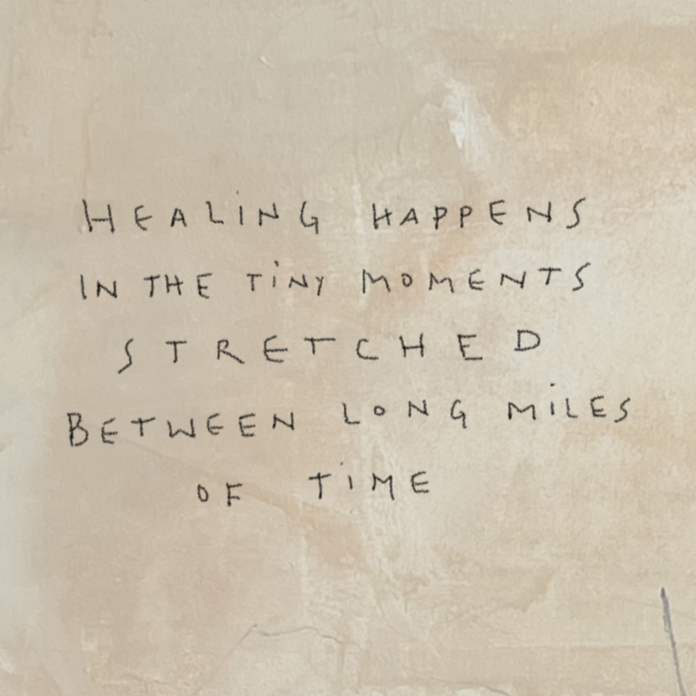 HEALING HAPPENS
IN THE TINY MOMENTS
STRETCHED
BETWEEN LONG MILES
OF TIME